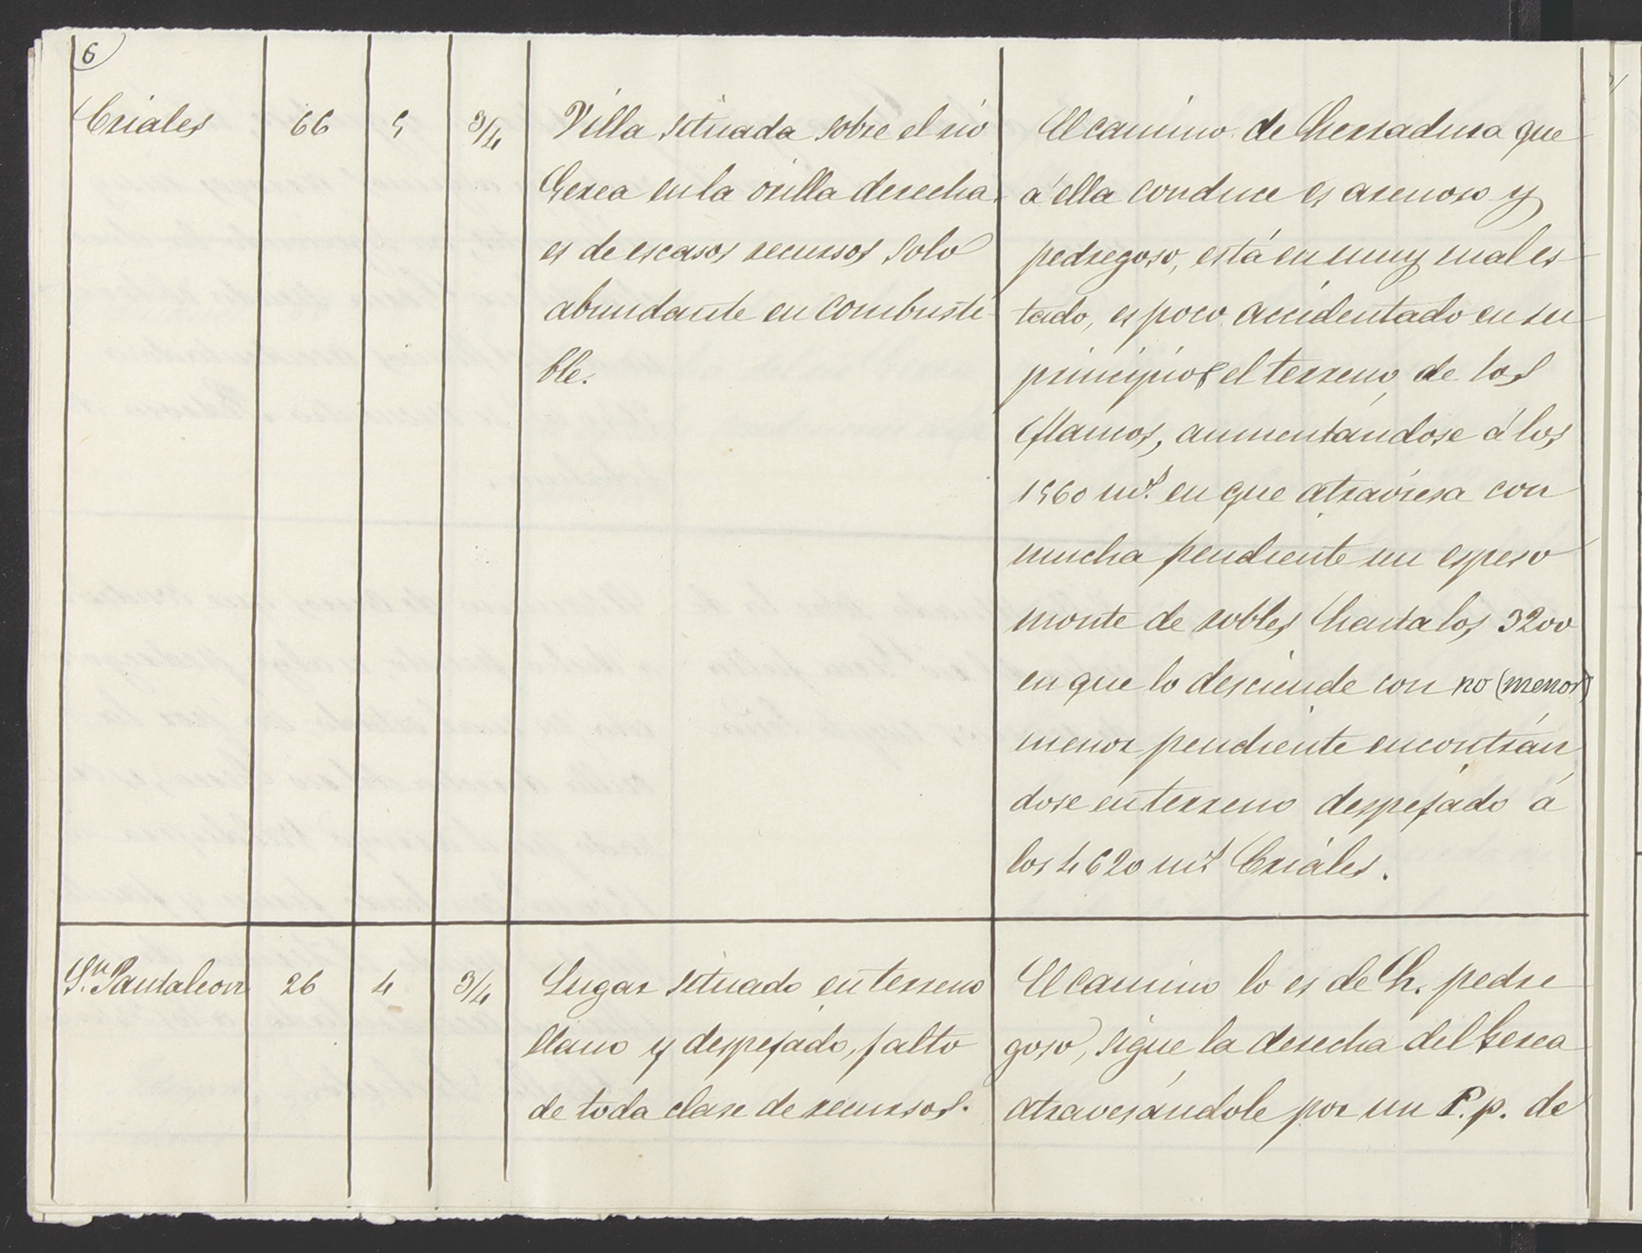 6
Criales
66
5
3/4
Villa situada sobre el rio
Gerea en la orilla derecha,
es de escasos recursos solo
abundante en combusti-
ble.
El camino de herradura que
á ella conduce es arenoso y
pedregoso, está en muy mal es
tado, es poco accidentado en su
principio el terreno, de los
tramos, aumentándose á los
1560 mts. en que atraviesa con
mucha pendiente un espeso
monte de robles hasta los 3200
en que lo desciende con no (menor)
menor pendiente encontrán
dose en terreno despejado á
los 4620 mts Criáles.
Sn. Pantaleon
26
4
3/4
Lugar situado en terreno
llano y despejado, falto
de toda clase de recursos.
El camino lo es de h. pedre
goso, sigue la derecha del Gerea
atravesándole por un P. p. de